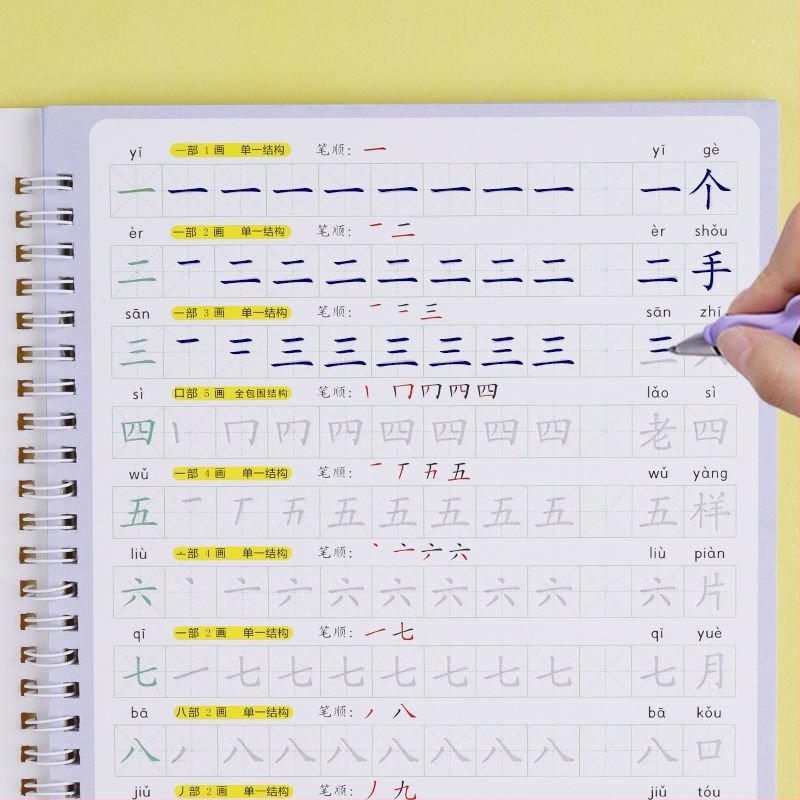 yī 一部 1 画 单一结构 笔顺: 一 yī gè
一 一 一 一 一 一 一 一 一 一 个
èr 一部 2 画 单一结构 笔顺: 一 二 èr shǒu
二 一 二 二 二 二 二 二 二 二 手
sān 一部 3 画 单一结构 笔顺: 一 二 三 sān zhī
三 一 二 三 三 三 三 三 三 三
sì 口部 5 画 全包围结构 笔顺: 丨 冂 四 四 lǎo sì
四 丨 冂 四 四 四 四 四 老 四
wǔ 一部 4 画 单一结构 笔顺: 一 丅 五 五 wǔ yàng
五 一 丅 五 五 五 五 五 五 五 样
liù 亠部 4 画 单一结构 笔顺: 丶 亠 六 六 liù piàn
六 丶 亠 六 六 六 六 六 六 六 片
qī 一部 2 画 单一结构 笔顺: 一 七 qī yuè
七 一 七 七 七 七 七 七 七 七 月
bā 八部 2 画 单一结构 笔顺: 丿 八 bā kǒu
八 丿 八 八 八 八 八 八 八 八 口
jiǔ 丿部 2 画 单一结构 笔顺: 丿 九 jiǔ tóu